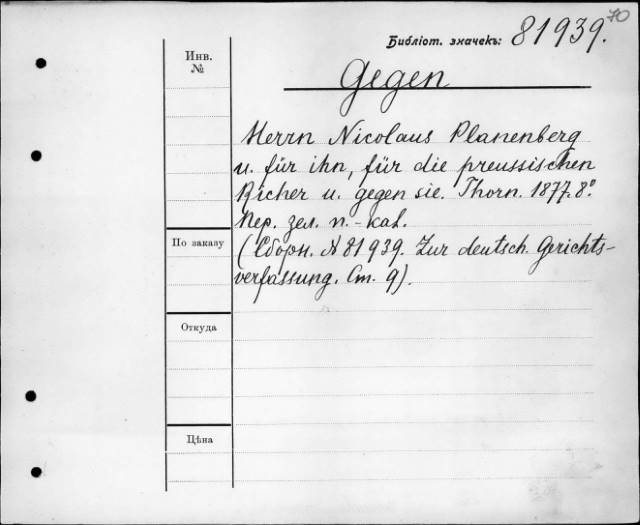 70
Библіот. значекъ: 81939.
Инв.
№
Gegen
Herrn Nicolaus Planenberg
u. für ihn, für die preussischen
Richer u. gegen sie. Thorn. 1877. 8º.
Пер. зел. п.-каl.
По заказу
(Сборн. № 81939. Zur deutsch. Gerichts-
verfassung. Ст. 9).
Откуда
Цѣна